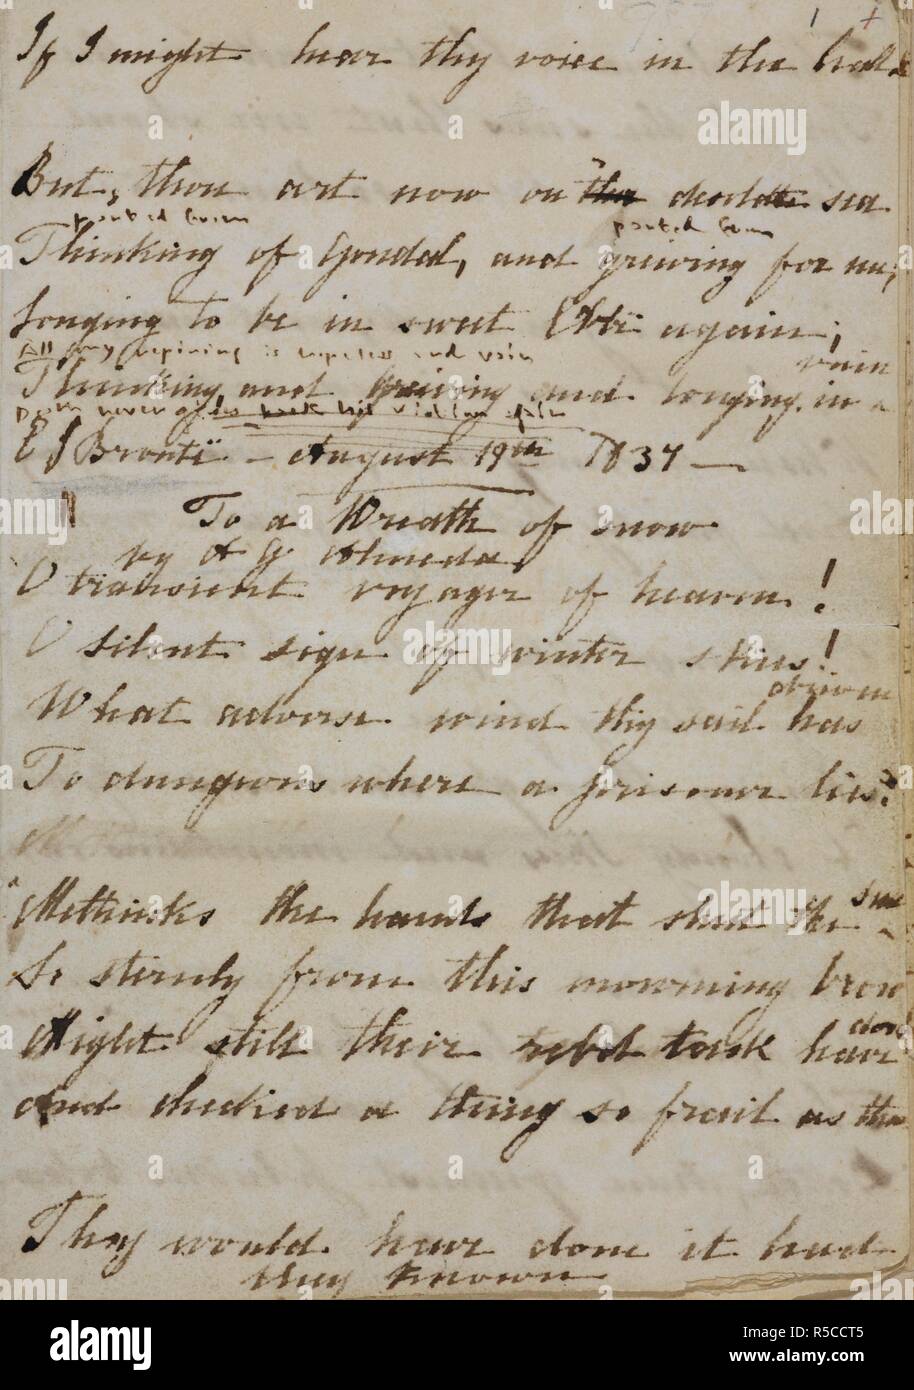 If I might hear thy voice in the hall
But, thou art now on the desolate sea
parted from parted from
Thinking of Gondal, and grieving for me;
Longing to be in sweet Elbë again;
All my repining is hopeless and vain
Thinking and grieving and longing in vain
Death never gives back his victims again
E J Brontë – August 19th 1837 —
To a Wreath of snow
by A G Almeda
O transient voyager of heaven!
O silent sign of winter skies!
What adverse wind thy sail has driven
To dungeons where a prisoner lies?
Methinks the hands that shut the sun
So sternly from this mourning brow
Might still their rebel task have done
And checked a thing so frail as thou
They would have done it had
they known
alamy stock photo
R5CCT5
www.alamy.com